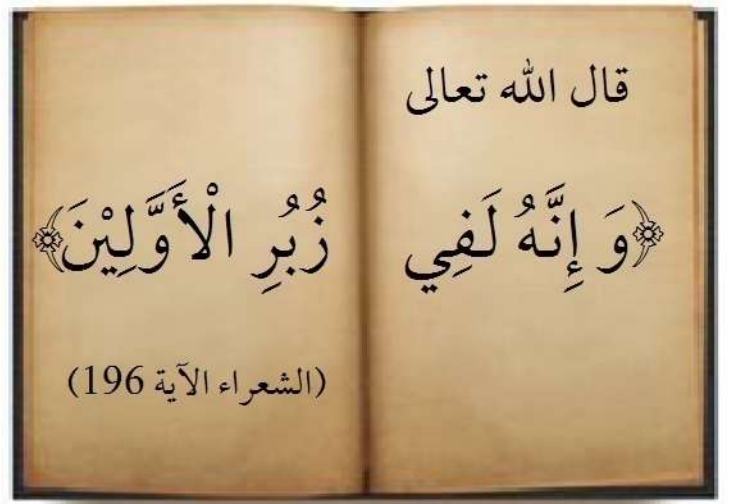 قال الله تعالى
﴿وَ إِنَّهُ لَفِي زُبُرِ الْأَوَّلِيْنَ﴾
(الشعراء الآية 196)